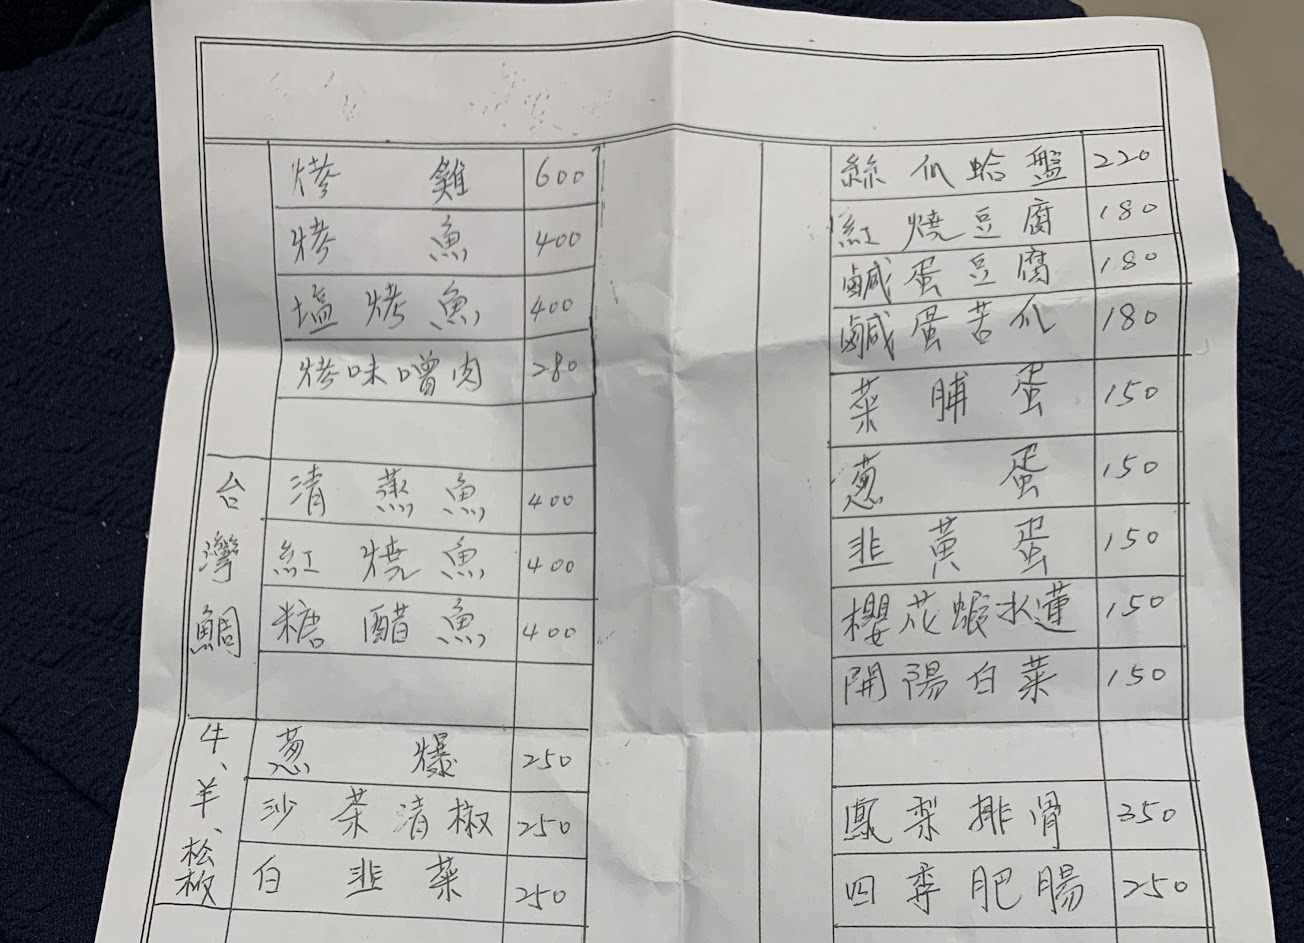 烤雞 600
烤魚 400
塩烤魚 400
烤味噌肉 280
台灣鯛
清蒸魚 400
紅燒魚 400
糖醋魚 400
牛、羊、松板
蔥爆 250
沙茶清椒 250
白韮菜 250
絲瓜蛤盤 220
紅燒豆腐 180
鹹蛋豆腐 180
鹹蛋苦瓜 180
菜脯蛋 150
蔥蛋 150
韮黃蛋 150
櫻花蝦水蓮 150
開陽白菜 150
鳳梨排骨 350
四季肥腸 250